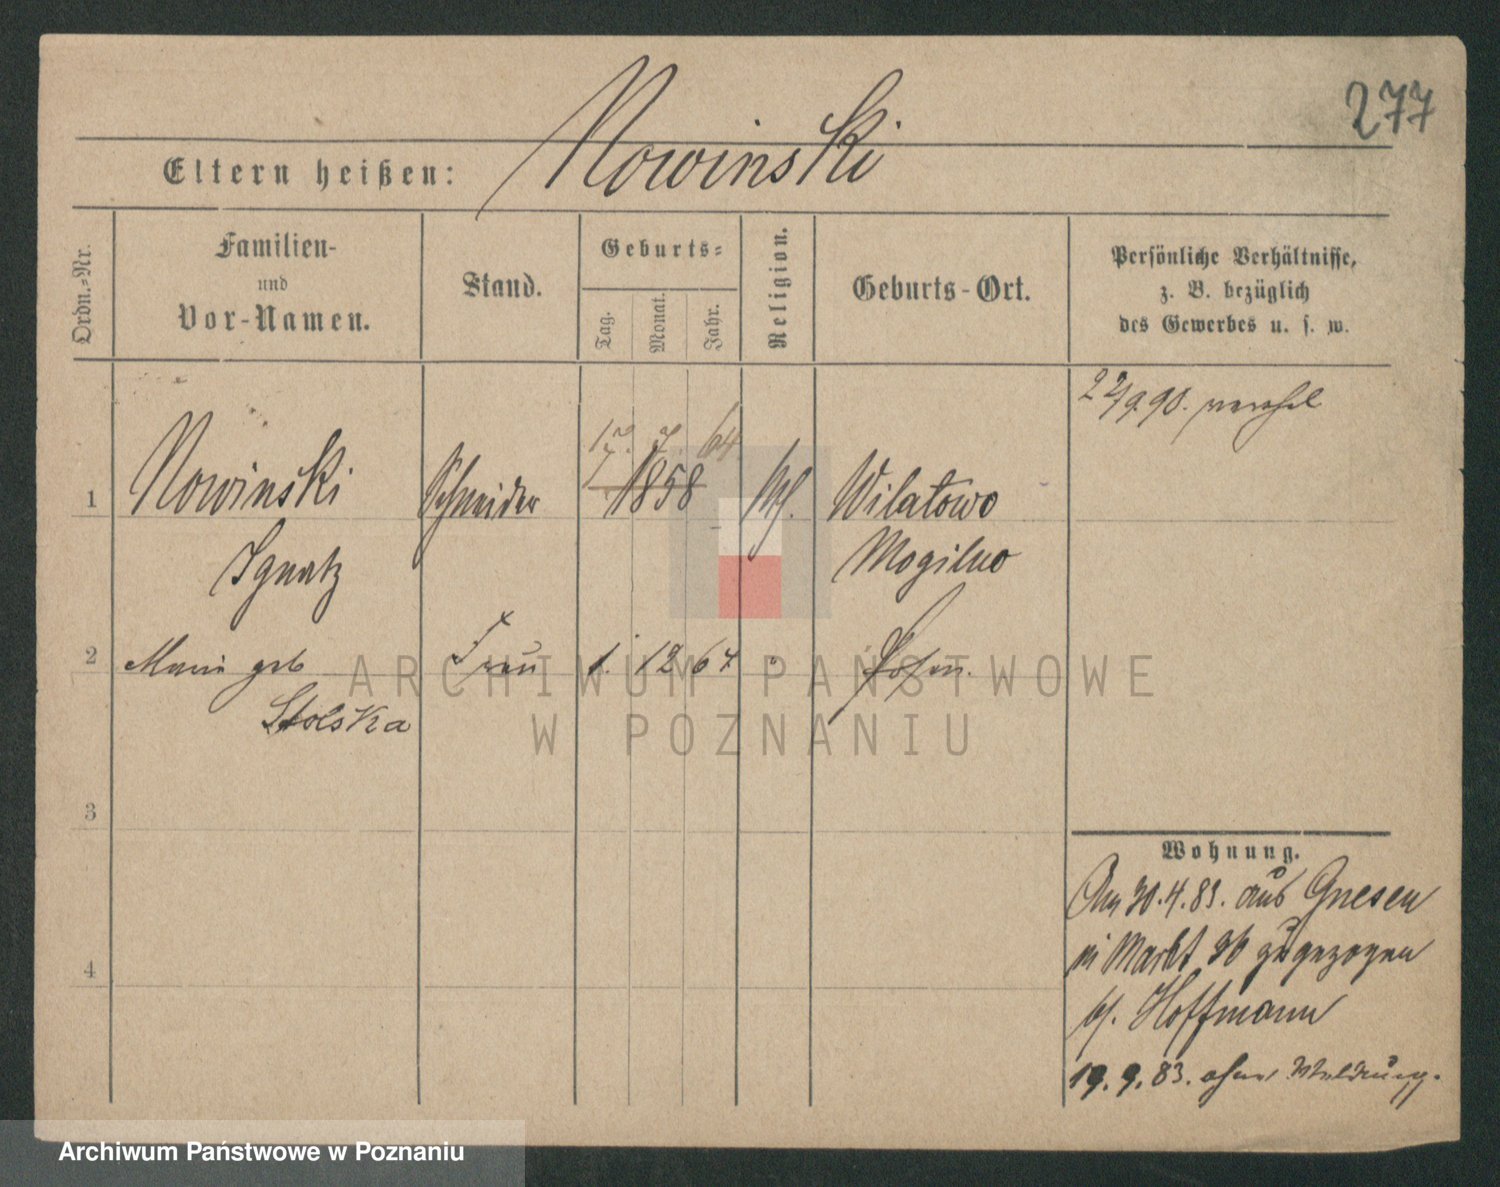 277
Nowinski
Eltern heißen:
Ordn.-Nr.
Familien-
und
Vor-Namen.
Stand.
Geburts-
Tag.
Monat.
Jahr.
Religion.
Geburts-Ort.
Persönliche Verhältnisse,
z. B. bezüglich
des Gewerbes u. s. w.
17. 7. 64
1 Nowinski Schneider 1858 kth. Wilatowo
Ignatz Mogilno
2 Marie geb Frau 1. 12 64 " Posen.
Stolska
3
4
Wohnung.
Am 30.4.83. aus Gnesen
in Markt 36 zugezogen
bf. Hoffmann
19.9.83. ohne Meldung.
ARCHIWUM PAŃSTWOWE
W POZNANIU
Archiwum Państwowe w Poznaniu